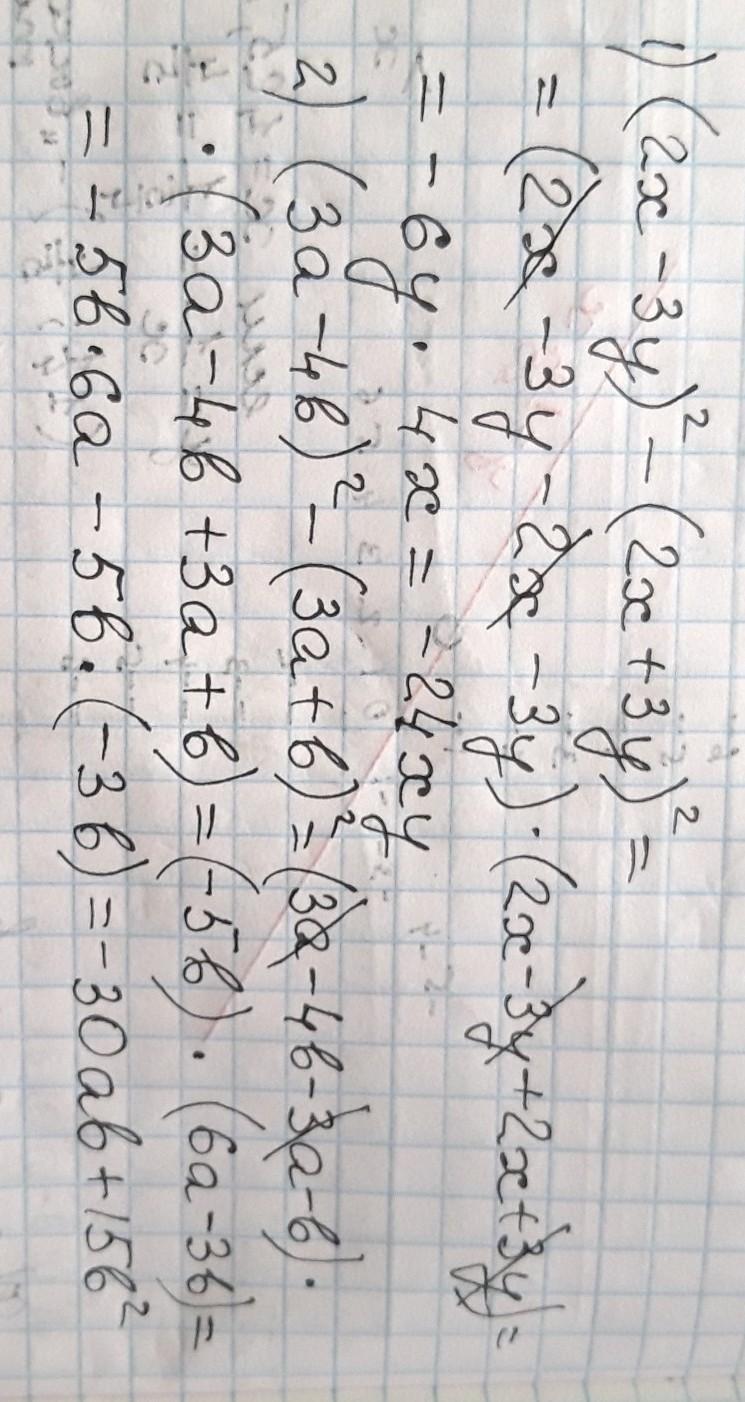 1) (2x - 3y)² - (2x + 3y)² =
= (2x - 3y - 2x - 3y) · (2x - 3y + 2x + 3y) =
= - 6y · 4x = - 24xy
2) (3a - 4b)² - (3a + b)² = (3a - 4b - 3a - b) ·
· (3a - 4b + 3a + b) = (-5b) · (6a - 3b) =
= - 5b · 6a - 5b · (-3b) = - 30ab + 15b²